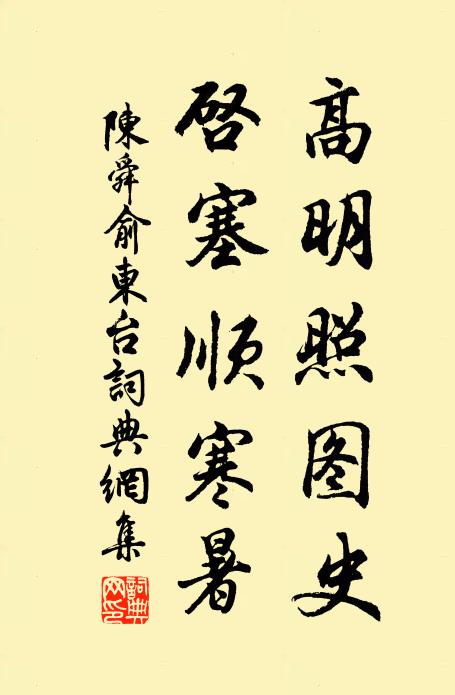 高明照图史
启塞顺寒暑
陳舜俞東台詞典網集
詞典网印